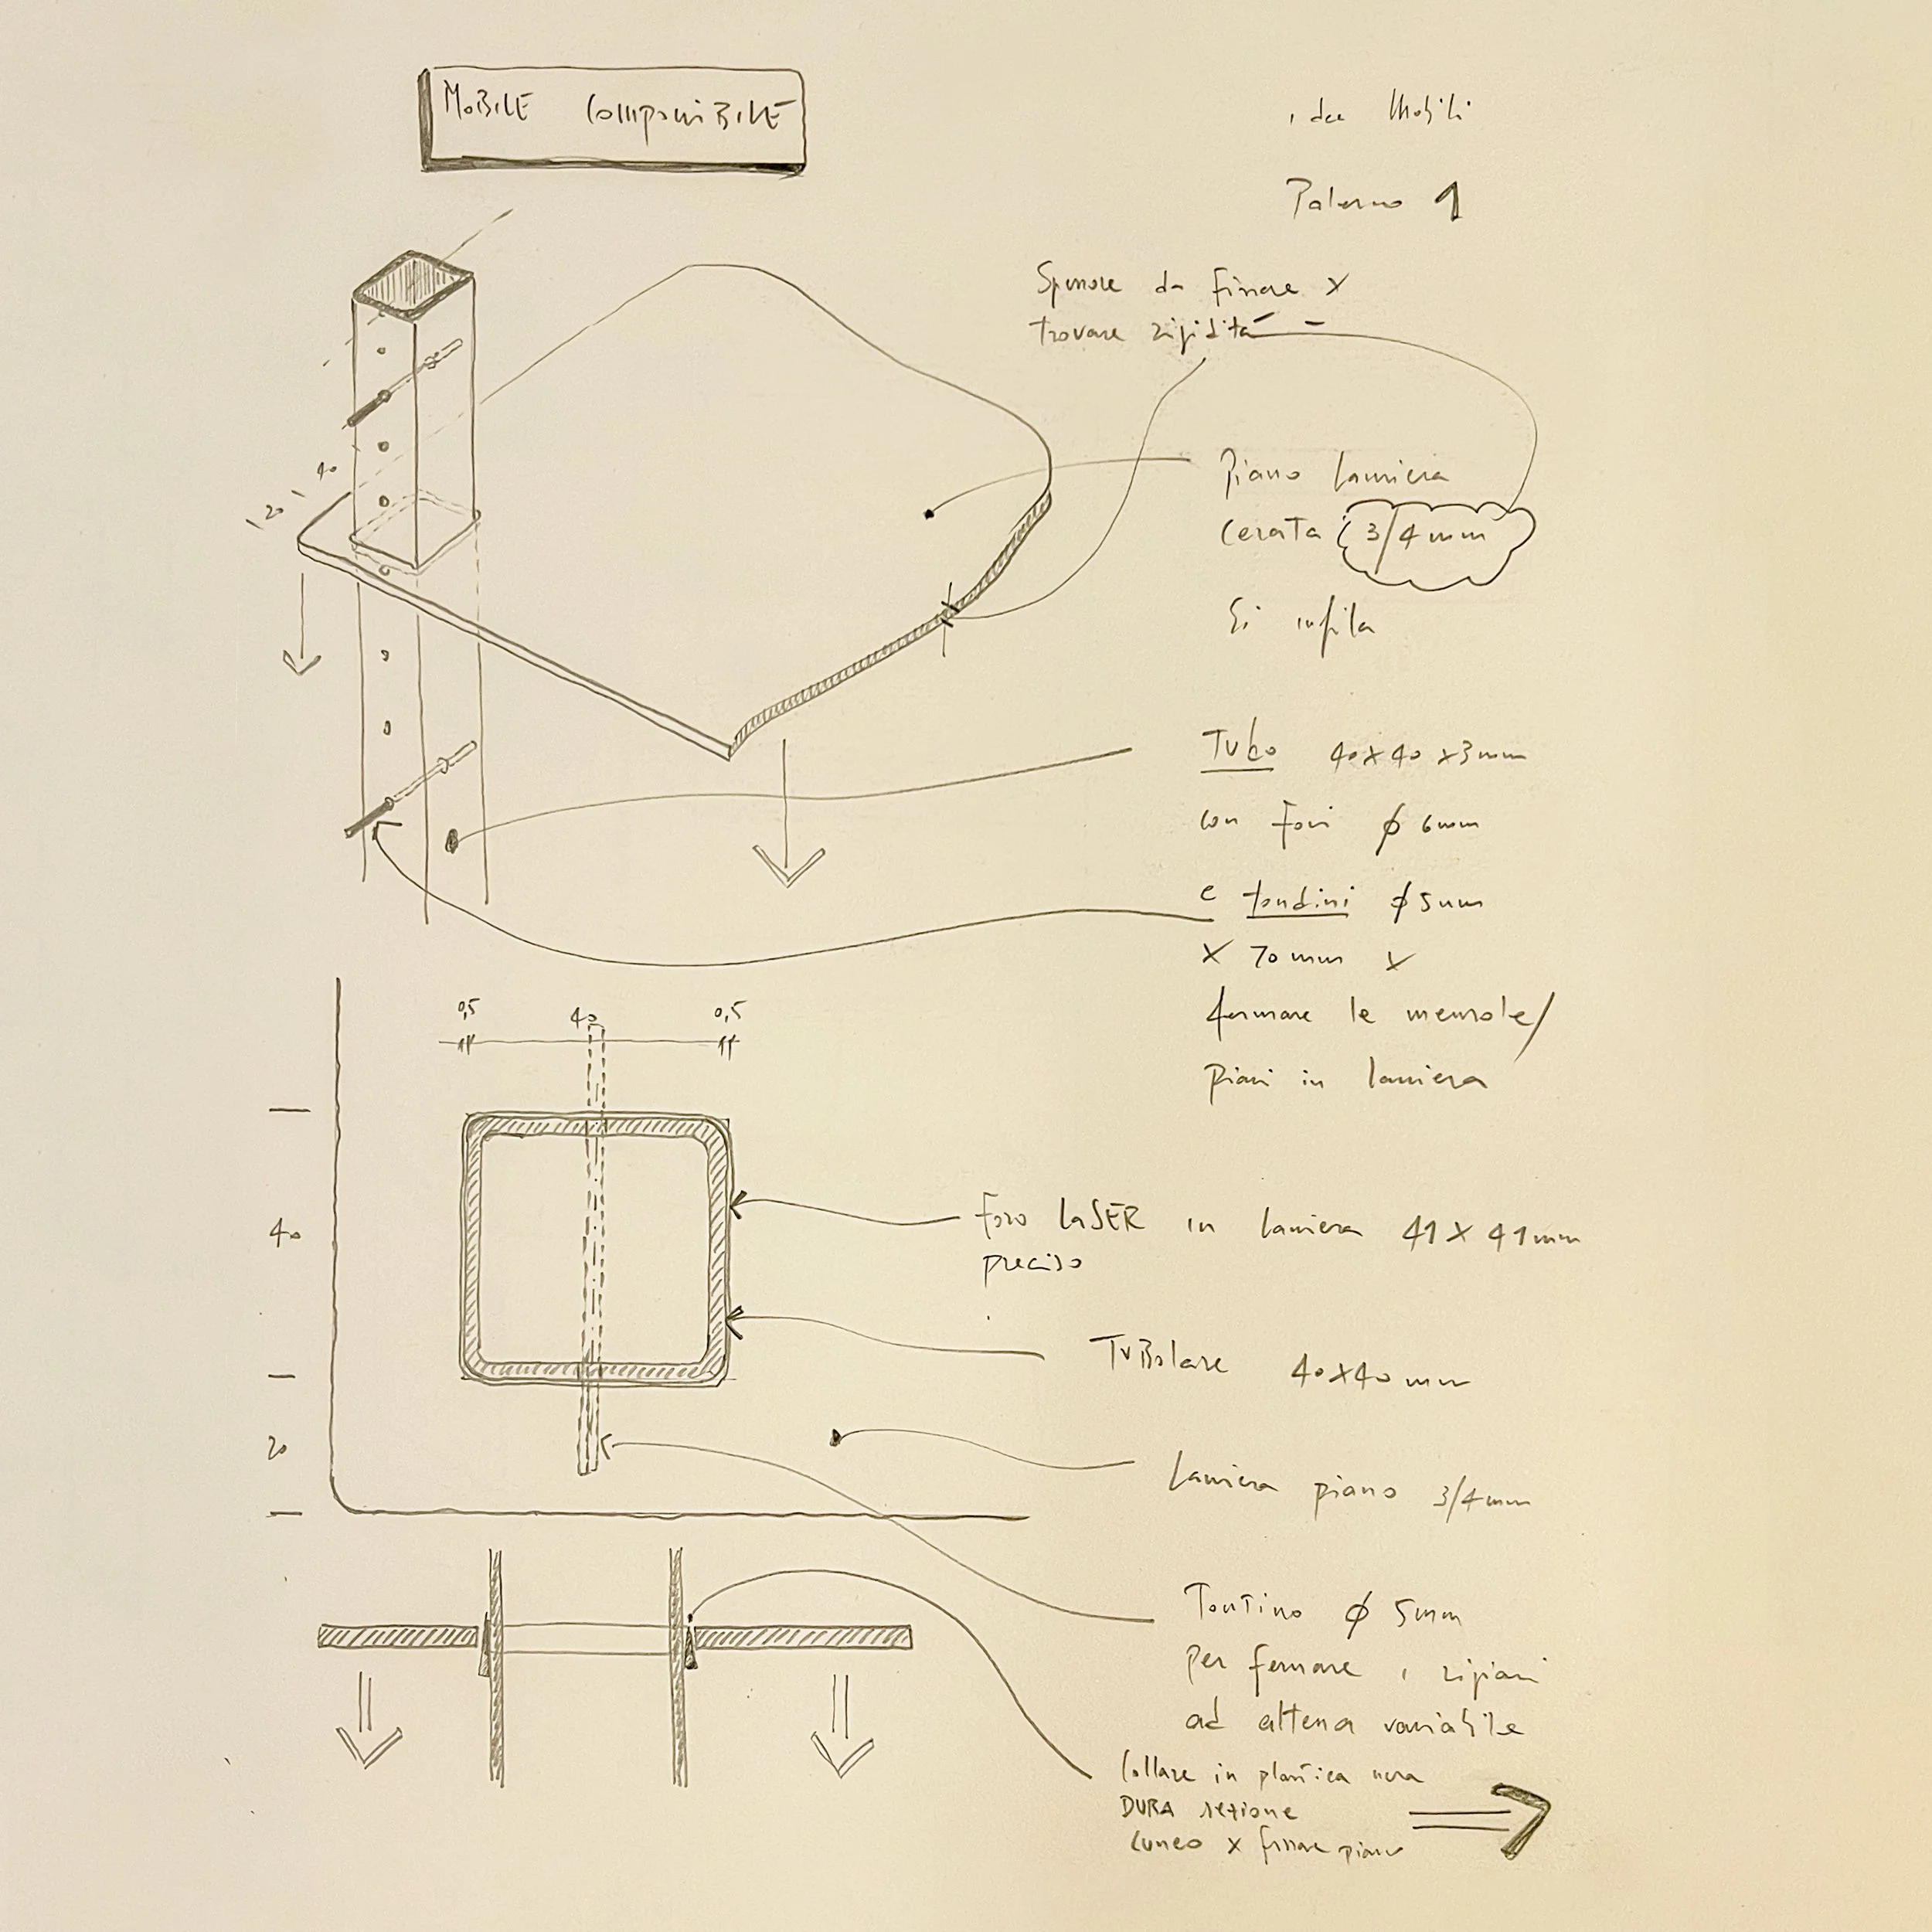 MOBILE COMPONIBILE
idee Mobili
Palermo 1
Spessore da fissare x
trovare rigidità -
40
20
Piano lamiera
cerata 3/4 mm
Si infila
Tubo 40x40x3mm
con fori ϕ 6mm
e tondini ϕ 5mm
x 70 mm x
fermare le mensole/
piani in lamiera
0,5 40 0,5
40
20
Foro LASER in lamiera 41x41mm
preciso
TuBolare 40x40mm
Lamiera piano 3/4mm
Tontino ϕ 5mm
per fermare i ripiani
ad altezza variabile
Collare in plastica nera
DURA sezione
cuneo x fissare piano